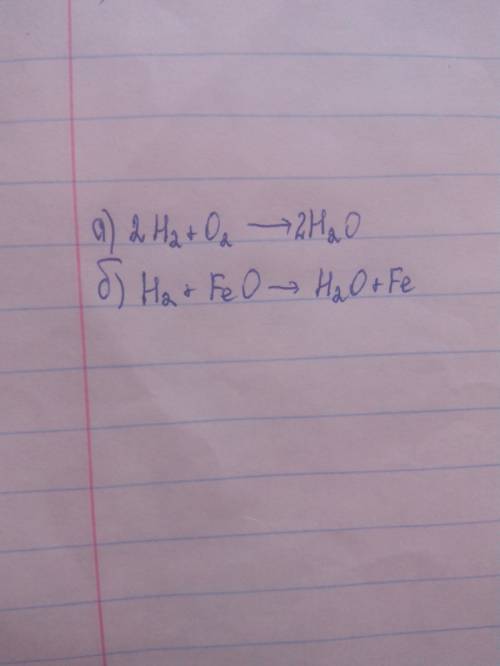 а) 2H₂ + O₂ ⟶ 2H₂O
б) H₂ + FeO ⟶ H₂O + Fe